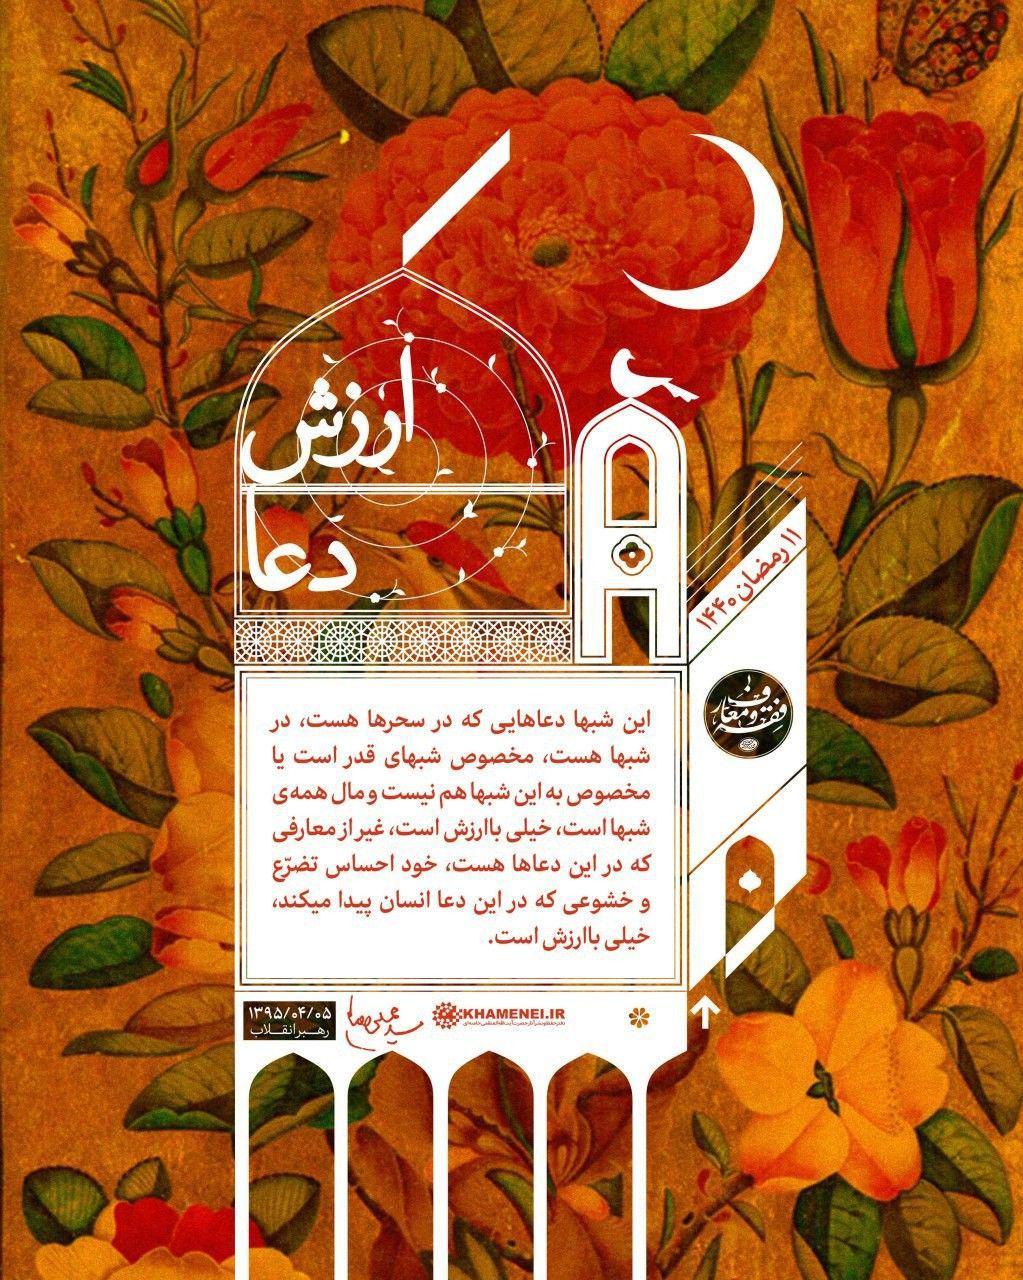 ارزش
دعا
۱۱ رمضان ۱۴۴۰
فقه و معارف
این شبها دعاهایی که در سحرها هست، در
شبها هست، مخصوص شبهای قدر است یا
مخصوص به این شبها هم نیست و مال همه‌ی
شبها است، خیلی باارزش است، غیر از معارفی
که در این دعاها هست، خود احساس تضرّع
و خشوعی که در این دعا انسان پیدا میکند،
خیلی باارزش است.
۱۳۹۵/۰۴/۰۵
رهبر انقلاب
KHAMENEI.IR
دفتر حفظ و نشر آثار حضرت آیت‌الله‌العظمی خامنه‌ای